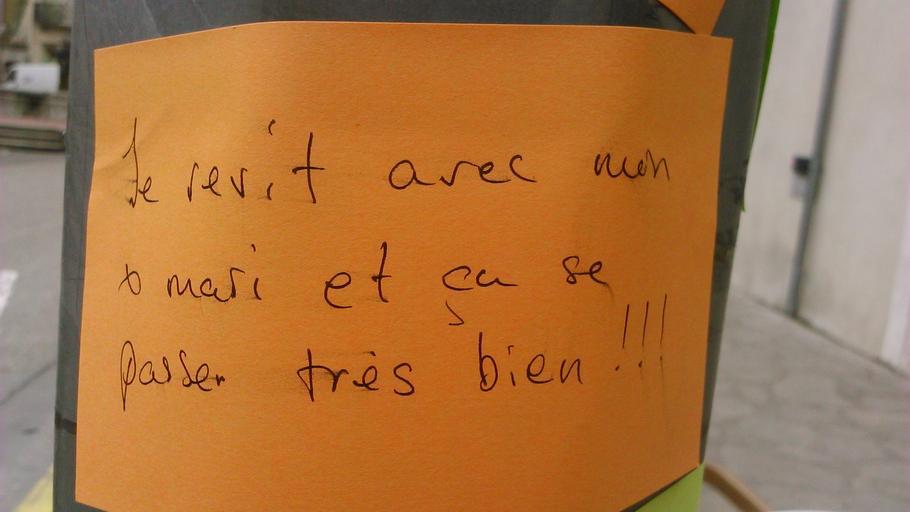 Je revit avec mon
x mari et ça se
passer très bien !!!